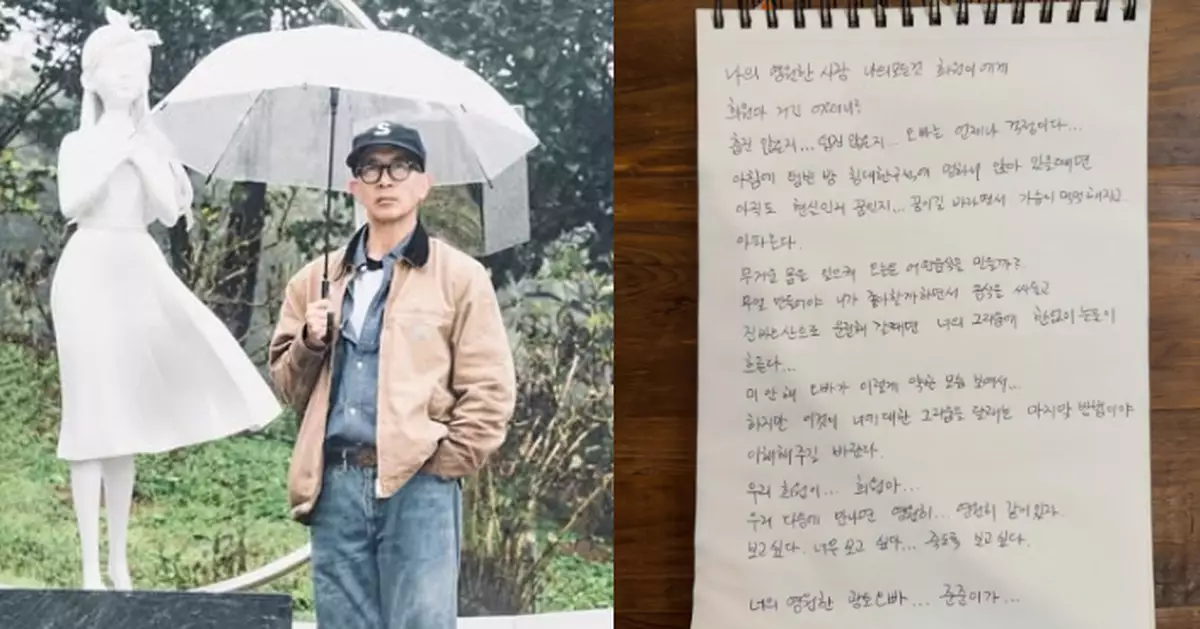 S
나의 영원한 사랑 나의모든것 희원이에게
희원아 거긴 어떠니?
춥진 않은지... 덥진 않은지... 오빠는 언제나 걱정이다...
아침에 텅빈 방 침대한구석에 멍하니 앉아 있을때면
아직도 현실인지 꿈인지... 꿈이길 바라면서 가슴이 먹먹해지고
아파온다.
무거운 몸을 일으켜 오늘은 어떤음식을 만들까?
무얼 만들어야 니가 좋아할까하면서 음식을 싸들고
진바오산으로 운전해 갈때면 너의 그리움에 한없이눈물이
흐른다...
미안해 오빠가 이렇게 약한 모습 보여서...
하지만 이것이 너에대한 그리움을 달래는 마지막 방법이야
이해해주길 바란다.
우리 희원이... 희원아...
우리 다음에 만나면 영원히... 영원히 같이있자
보고싶다. 너무 보고 싶다... 죽도록 보고싶다.
너의 영원한 광토오빠... 준준이가...